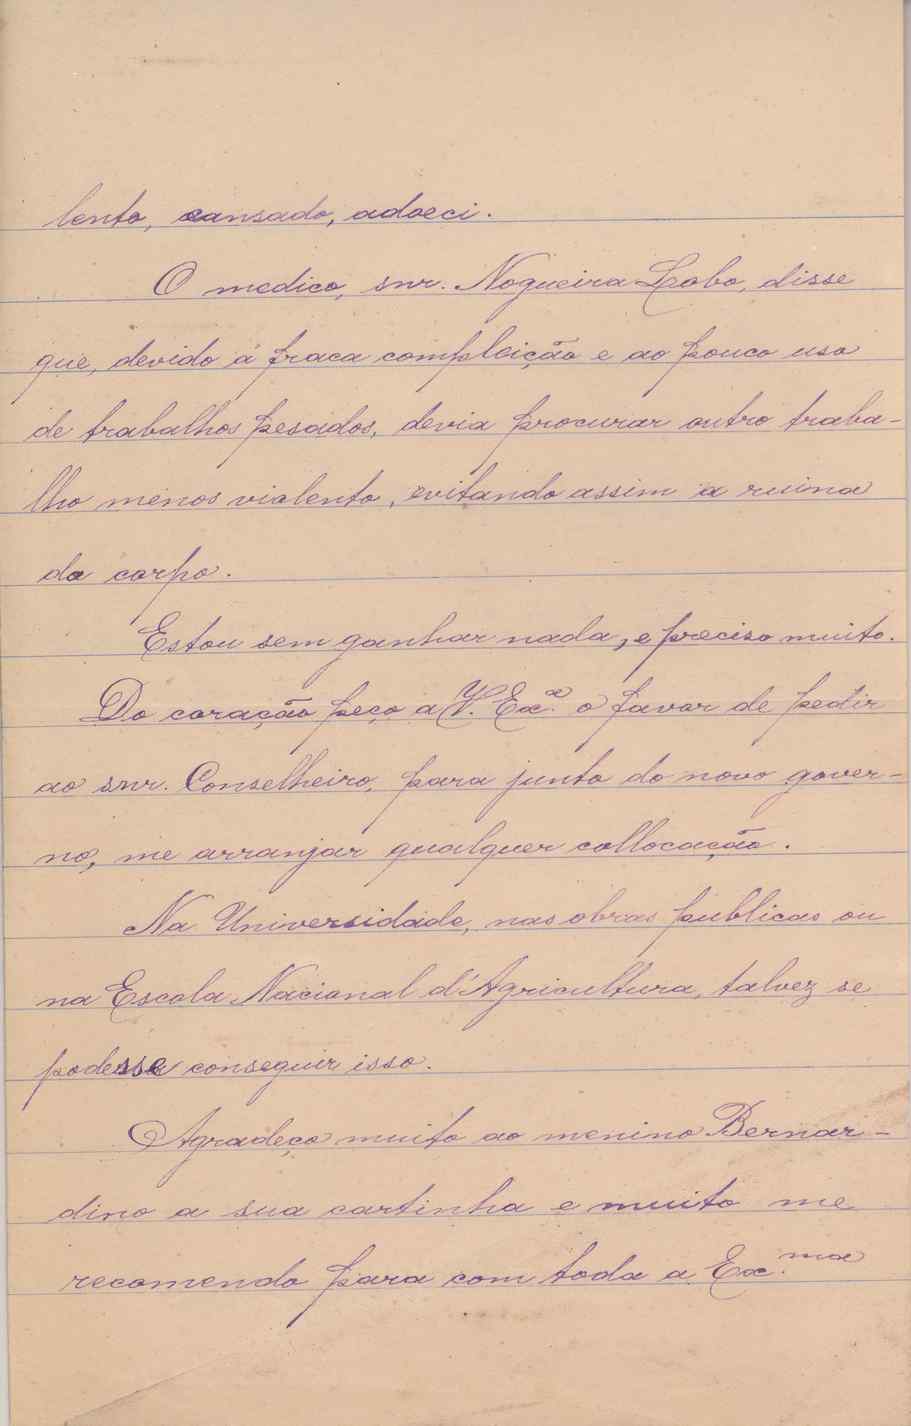 lento, cansado, adoeci.
O medico, snr. Nogueira Lobo, disse
que, devido á fraca compleição e ao pouco uso
de trabalhos pesados, devia procurar outro traba-
lho menos violento, evitando assim a ruina
do corpo.
Estou sem ganhar nada, e preciso muito.
Do coração peço a V. Ex.ª o favor de pedir
ao snr. Conselheiro, para junto do novo gover-
no, me arranjar qualquer collocação.
Na Universidade, nas obras publicas ou
na Escola Nacional d'Agricultura, talvez se
podesse conseguir isso.
Agradeço muito ao menino Bernar-
dino a sua cartinha e muito me
recomendo para com toda a Ex.ma